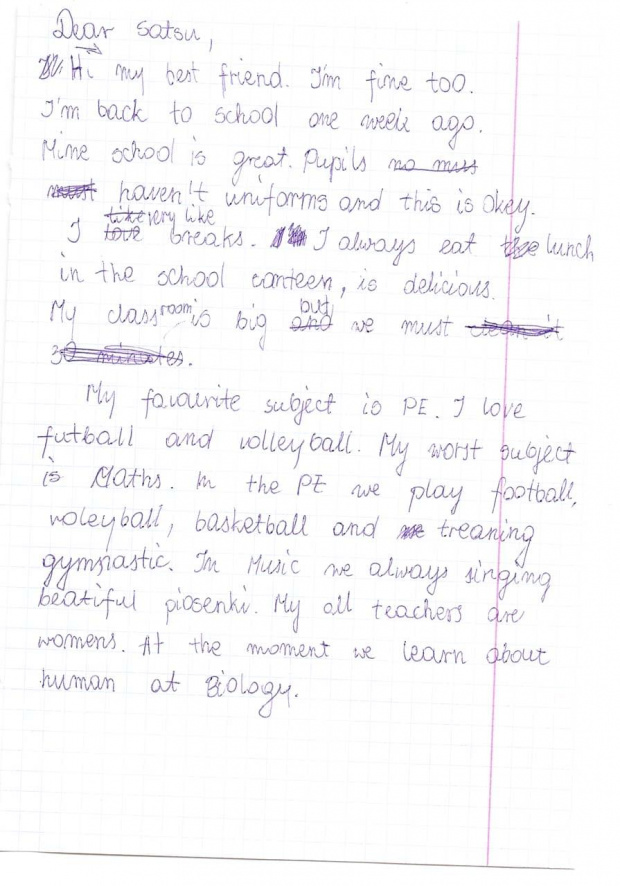 Dear Satsu,
Hi my best friend. I'm fine too.
I'm back to school one week ago.
Mine school is great. Pupils no muss
must haven't uniforms and this is Okey.
like very like
I love breaks. I always eat the lunch
in the school canteen, is delicious.
My classroom is big and but we must clean it
30 minutes.
My favourite subject is PE. I love
futball and volleyball. My worst subject
is Maths. In the PE we play football,
voleyball, basketball and treaning
gymnastic. In Music we always singing
beatiful piosenki. My all teachers are
womens. At the moment we learn about
human at Biology.